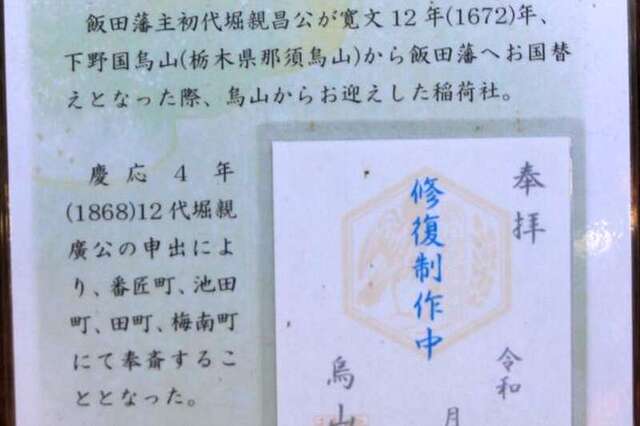 飯田藩主初代堀親昌公が寛文12年(1672)年、
下野国烏山(栃木県那須烏山)から飯田藩へお国替
えとなった際、烏山からお迎えした稲荷社。
慶応4年
(1868)12代堀親
廣公の申出によ
り、番匠町、池田
町、田町、梅南町
にて奉斎するこ
ととなった。
奉拝
修復制作中
烏山
令和
月